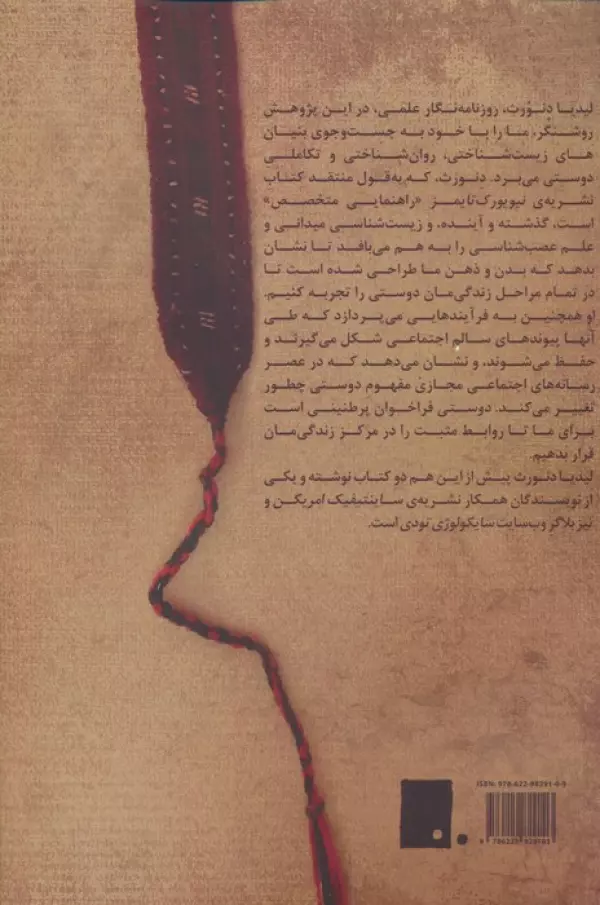 لیدیا دنوُرث، روزنامه‌نگار علمی، در این پژوهش
روشنگر، ما را با خود به جست‌وجوی بنیان
های زیست‌شناختی، روان‌شناختی و تکاملی
دوستی می‌برد. دنورث، که به‌قول منتقد کتاب
نشریه‌ی نیویورک‌تایمز «راهنمایی متخصص»
است، گذشته و آینده، و زیست‌شناسی میدانی و
علم عصب‌شناسی را به هم می‌بافد تا نشان
بدهد که بدن و ذهن ما طراحی شده است تا
در تمام مراحل زندگی‌مان دوستی را تجربه کنیم.
او همچنین به فرآیندهایی می‌پردازد که طی
آنها پیوندهای سالم اجتماعی شکل می‌گیرند و
حفظ می‌شوند، و نشان می‌دهد که در عصر
رسانه‌های اجتماعی مجازی مفهوم دوستی چطور
تغییر می‌کند. دوستی فراخوان پرطنینی است
برای ما تا روابط مثبت را در مرکز زندگی‌مان
قرار بدهیم.
لیدیا دنورث پیش از این هم دو کتاب نوشته و یکی
از نویسندگان همکار نشریه‌ی ساینتیفیک امریکن و
نیز بلاگر وب‌سایت سایکولوژی تودی است.
ISBN: